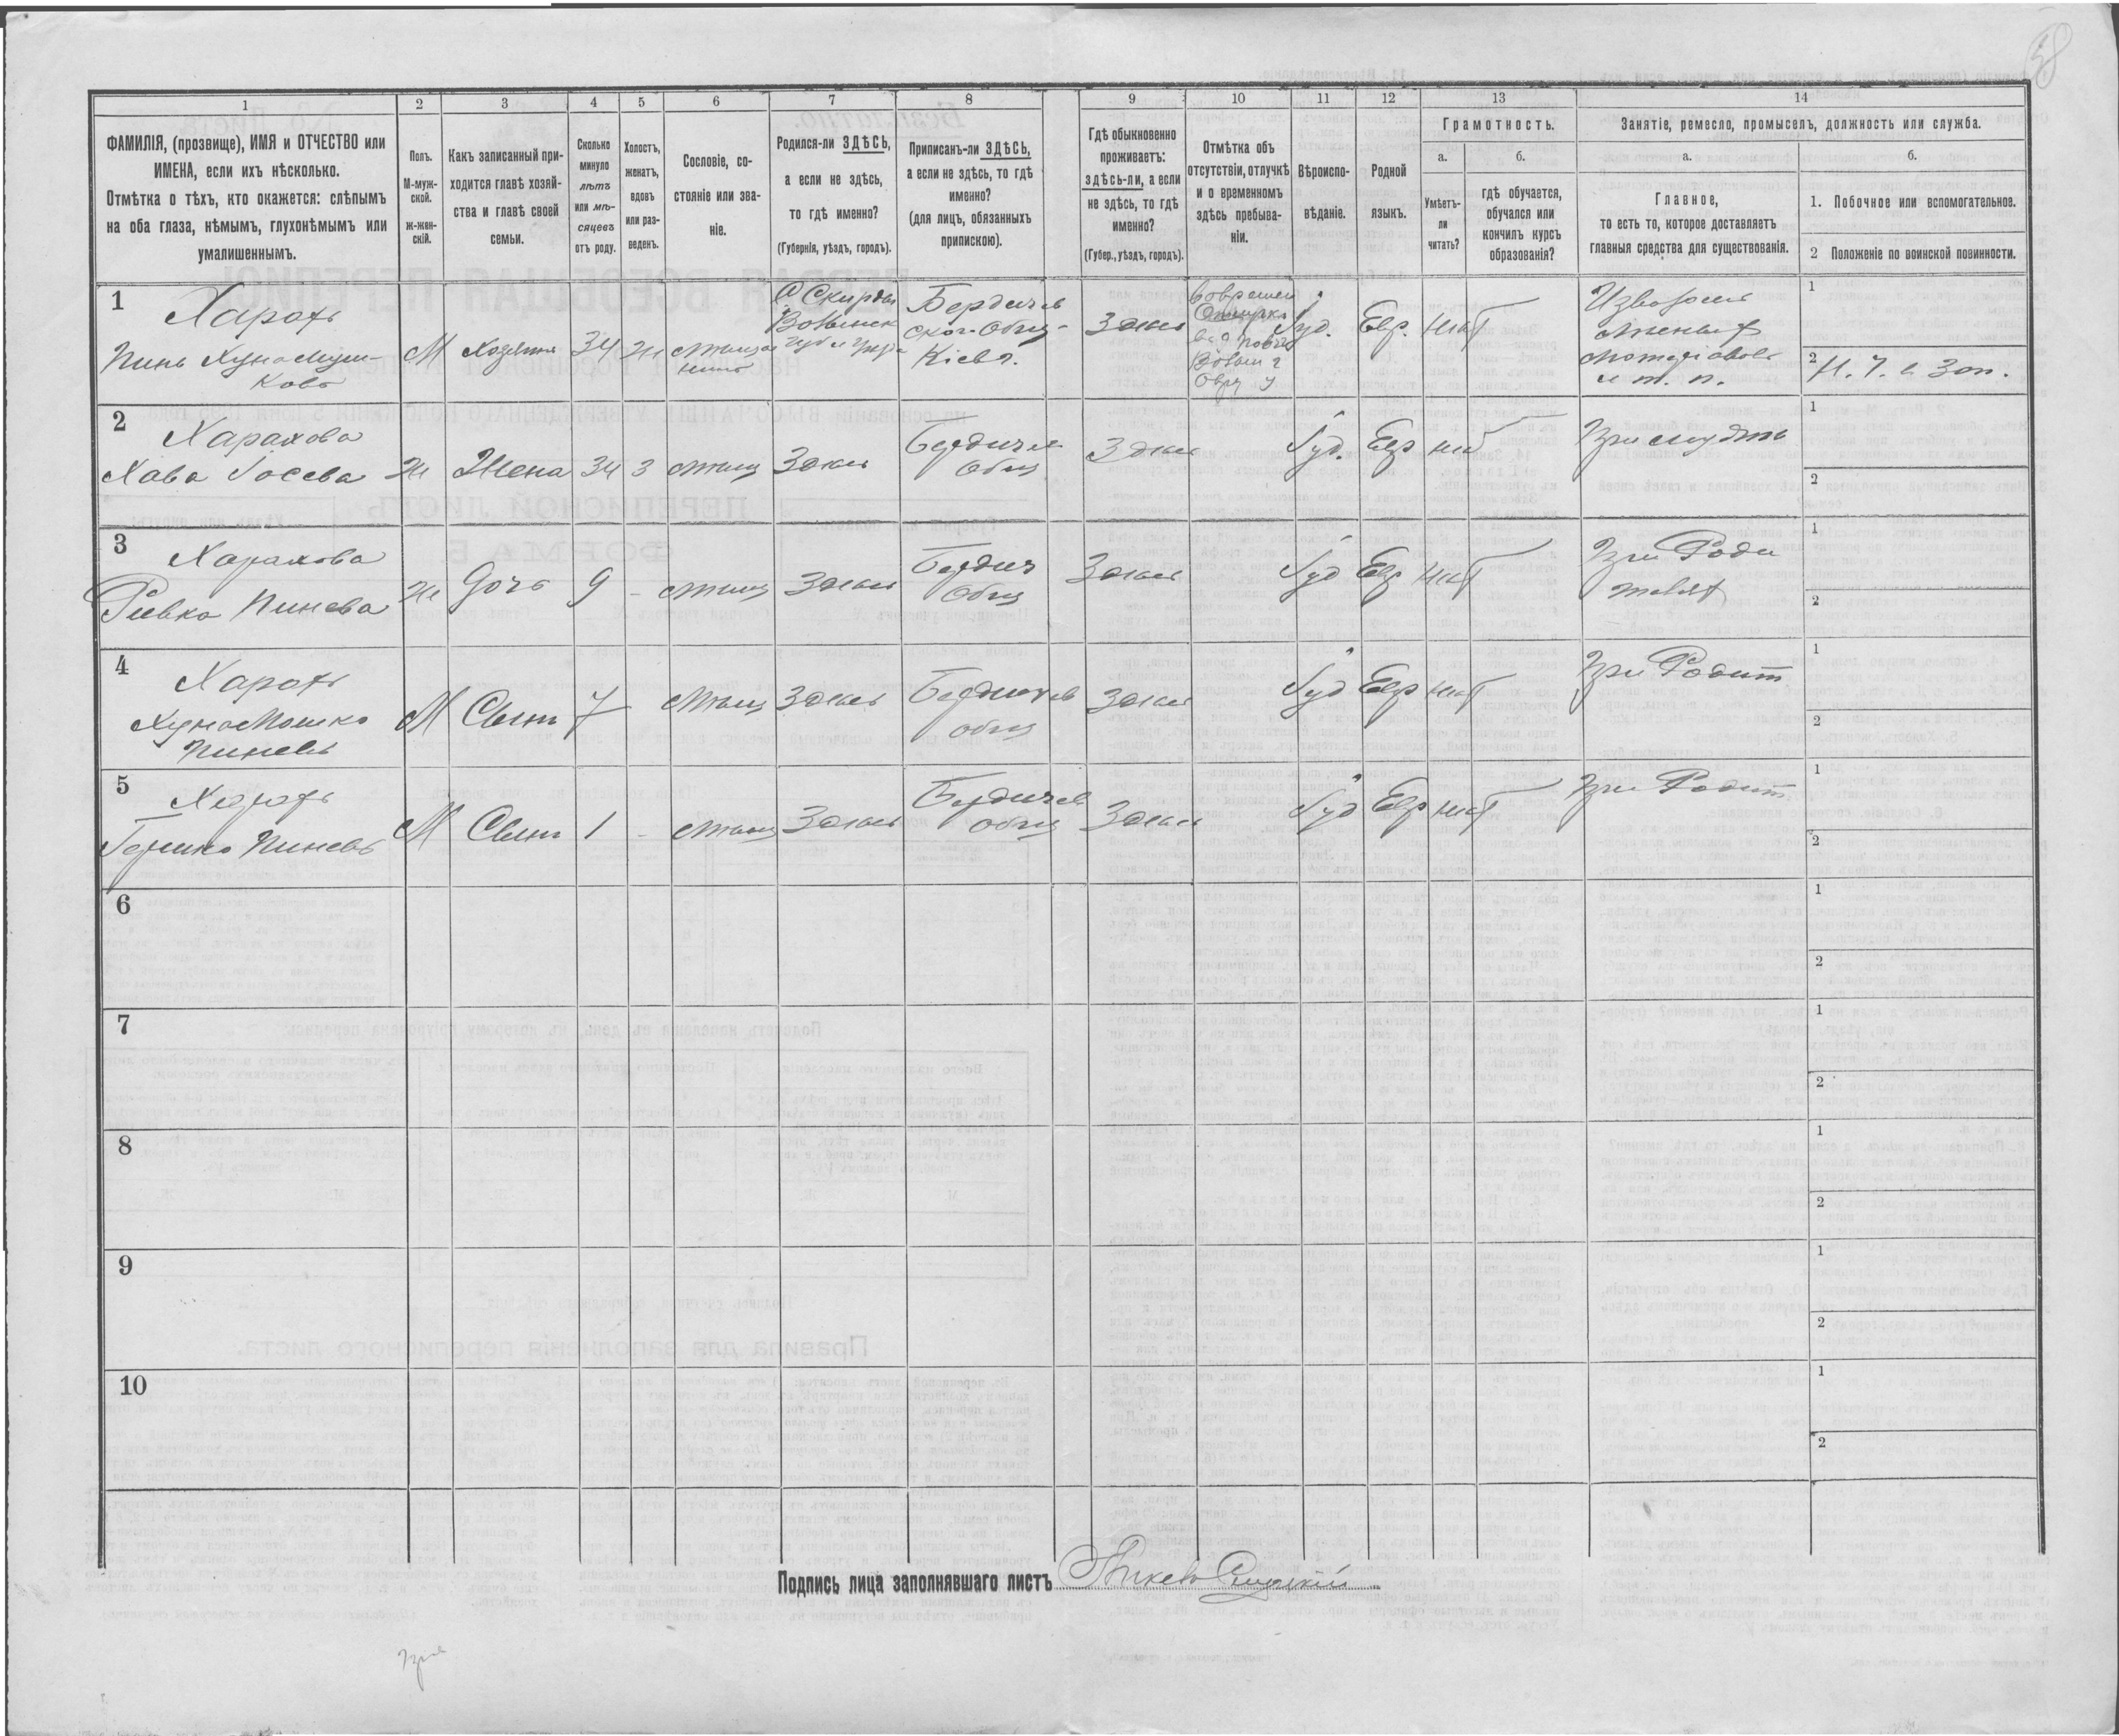 1
2
3
4
5
6
7
8
9
10
11
12
13
14
ФАМИЛІЯ, (прозвище), ИМЯ и ОТЧЕСТВО или
ИМЕНА, если ихъ нѣсколько.
Отмѣтка о тѣхъ, кто окажется: слѣпымъ
на оба глаза, нѣмымъ, глухонѣмымъ или
умалишеннымъ.
Полъ.
М-муж-
ской.
ж-жен-
скій.
Какъ записанный при-
ходится главѣ хозяй-
ства и главѣ своей
семьи.
Сколько
минуло
лѣтъ
или мѣ-
сяцевъ
отъ роду.
Холостъ,
женатъ,
вдовъ
или раз-
веденъ.
Сословіе, со-
стояніе или зва-
ніе.
Родился-ли ЗДѢСЬ,
а если не здѣсь,
то гдѣ именно?
(Губернія, уѣздъ, городъ).
Приписанъ-ли ЗДѢСЬ,
а если не здѣсь, то гдѣ
именно?
(для лицъ, обязанныхъ
припискою).
Гдѣ обыкновенно
проживаетъ:
здѣсь-ли, а если
не здѣсь, то гдѣ
именно?
(Губер., уѣздъ, городъ).
Отмѣтка объ
отсутствіи, отлучкѣ
и о временномъ
здѣсь пребыва-
ніи.
Вѣроиспо-
вѣданіе.
Родной
языкъ.
Грамотность.
а.
Умѣетъ-
ли
читать?
б.
гдѣ обучается,
обучался или
кончилъ курсъ
образованія?
Занятіе, ремесло, промыселъ, должность или служба.
а.
Главное,
то есть то, которое доставляетъ
главныя средства для существованія.
б.
1. Побочное или вспомогательное.
2 Положеніе по воинской повинности.
1
Пинь
М Хозяинъ 34
Бердичев
ског. Общ-
Кіевг.
Здѣсь
Іуд. Евр. нѣт
и т. п.
1
2
2
Харахова
Хава Іосева
Ж Жена 34 З мѣщ Здѣсь
Бердичев
Общ
Здѣсь Іуд. Евр нѣт
При мужѣ
1
2
3
Харахова
Ривка Пинева
Ж Дочь 9 - мѣщ Здѣсь
Бердич
Общ
Здѣсь Іуд Евр нѣт
При Роди
теляхъ
1
2
4
Харахъ
ХунаМошко
Пиневъ
М Сынъ 7 мѣщ Здѣсь
Бердичев
общ
Здѣсь Іуд Евр нѣт
При Родит
1
2
5
Харахъ
Пиневъ
М Сынъ 1 - мѣщ Здѣсь
Бердичев
общ
Здѣсь Іуд Евр нѣт
При Родит
1
2
6
1
2
7
1
2
8
1
2
9
1
2
10
1
2
Подпись лица заполнявшаго листъ